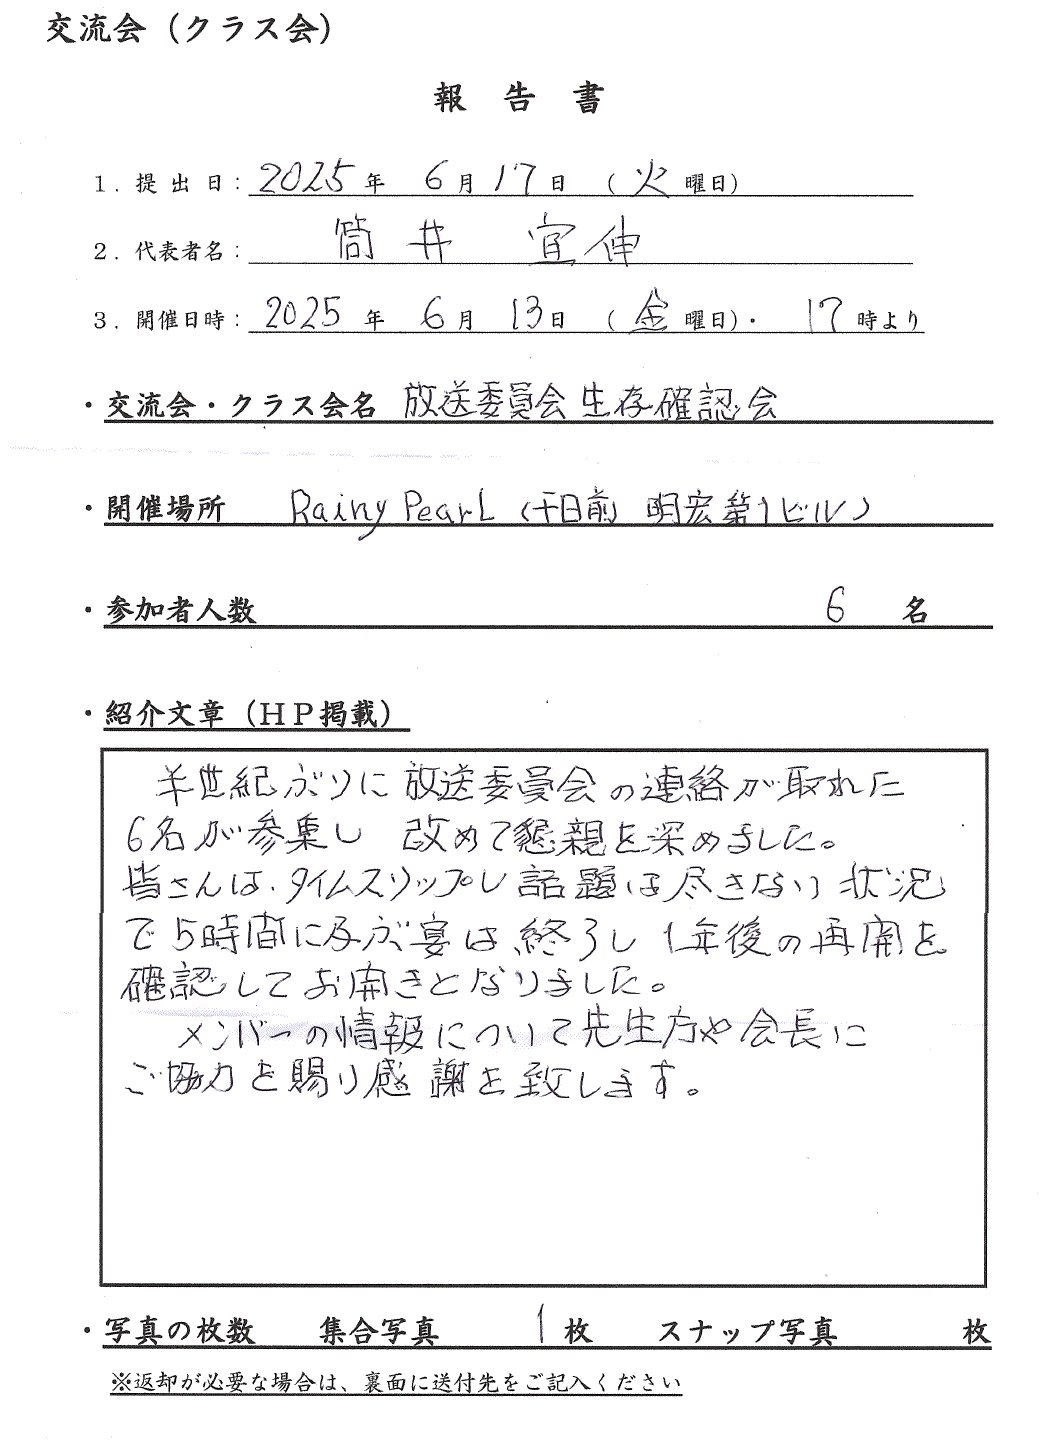 交流会（クラス会）
報告書
１. 提出日： 2025年 6月17日 （火曜日）
２. 代表者名： 筒井 宣伸
３. 開催日時： 2025年 6月 13日 （金曜日）・ 17時より
・交流会・クラス会名 放送委員会生存確認会
・開催場所 Rainy Pearl（千日前 明宏第1ビル）
・参加者人数 6名
・紹介文章（ＨＰ掲載）
半世紀ぶりに放送委員会の連絡が取れた
6名が参集し 改めて懇親を深めました。
皆さんは、タイムスリップし話題は尽きない状況
で5時間に及ぶ宴は、終了し 1年後の再開を
確認してお開きとなりました。
メンバーの情報について先生方や会長に
ご協力を賜り感謝を致します。
・写真の枚数 集合写真 1枚 スナップ写真 枚
※返却が必要な場合は、裏面に送付先をご記入ください